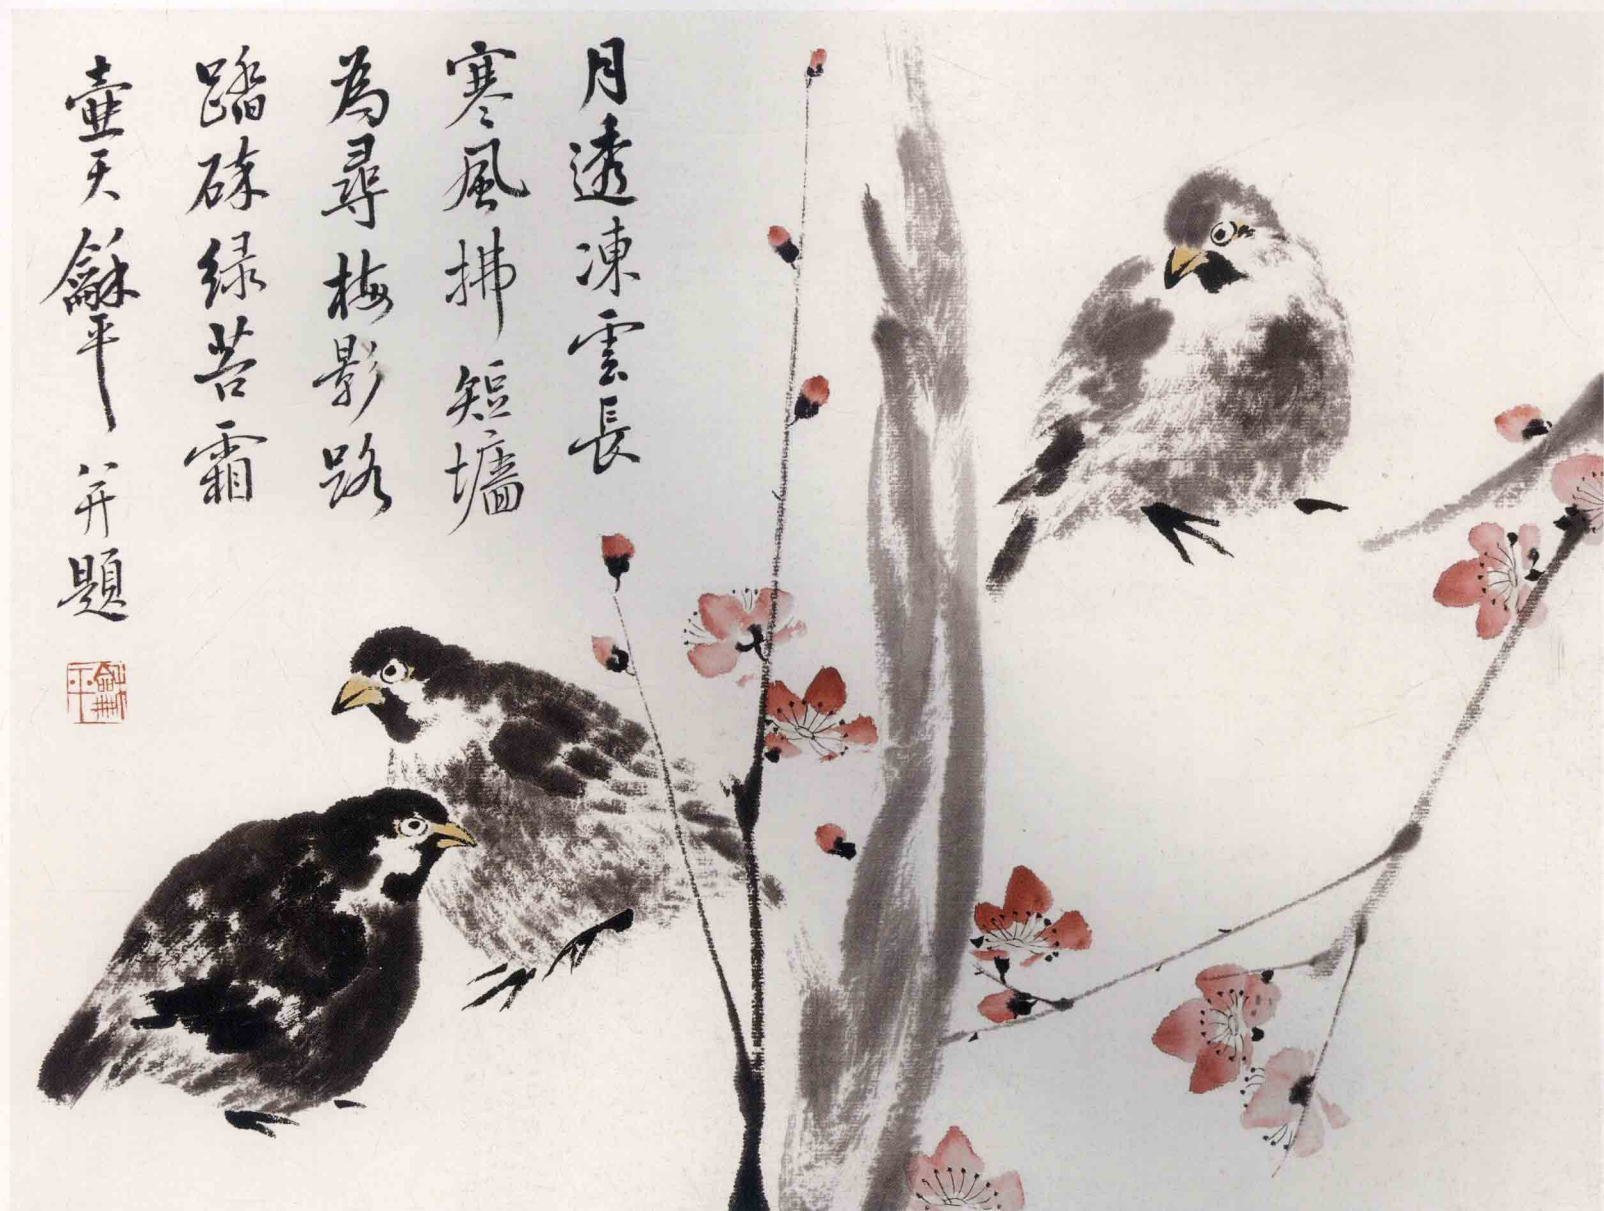 月透凍雲長
寒風拂短墻
為尋梅影路
踏碎绿苔霜
壷天龢平并題
龢平